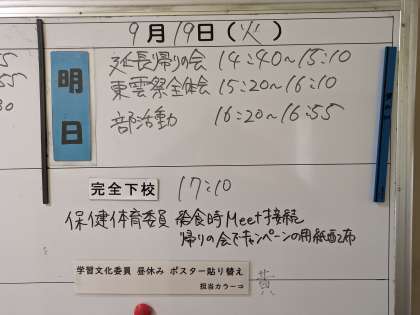 9月19日(火)
明日
延長帰りの会 14:40~15:10
東雲祭全体会 15:20~16:10
部活動 16:20~16:55
完全下校 17:10
保健体育委員 給食時Meet接続
帰りの会でキャンペーンの用紙配布
学習文化委員 昼休み ポスター貼り替え
担当カラーコ
黄
55
30